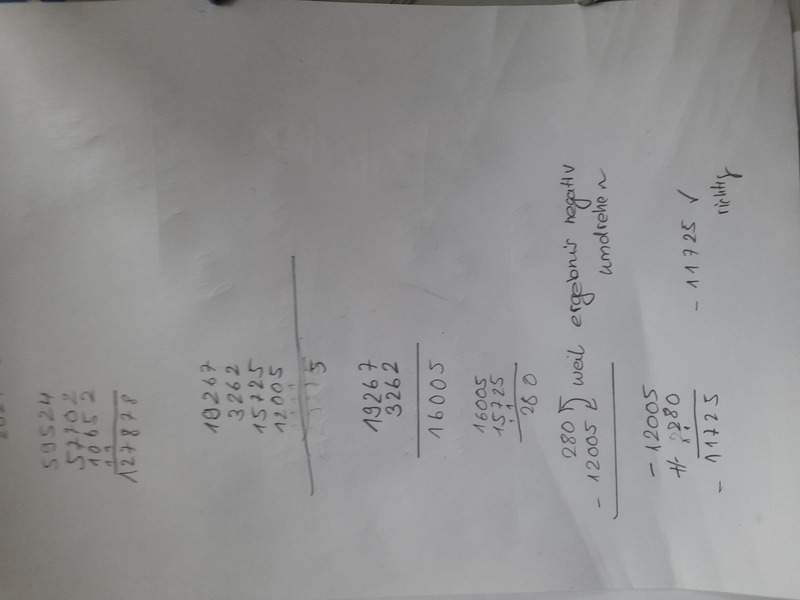 59524
57702
10652
11
127878
19267
3262
15725
12005
5
19267
3262
16005
16005
15725
1
280
280 weil ergebnis negativ
- 12005 umdrehen
- 12005
+/- 280
- 11725
- 11725 ✓
richtig